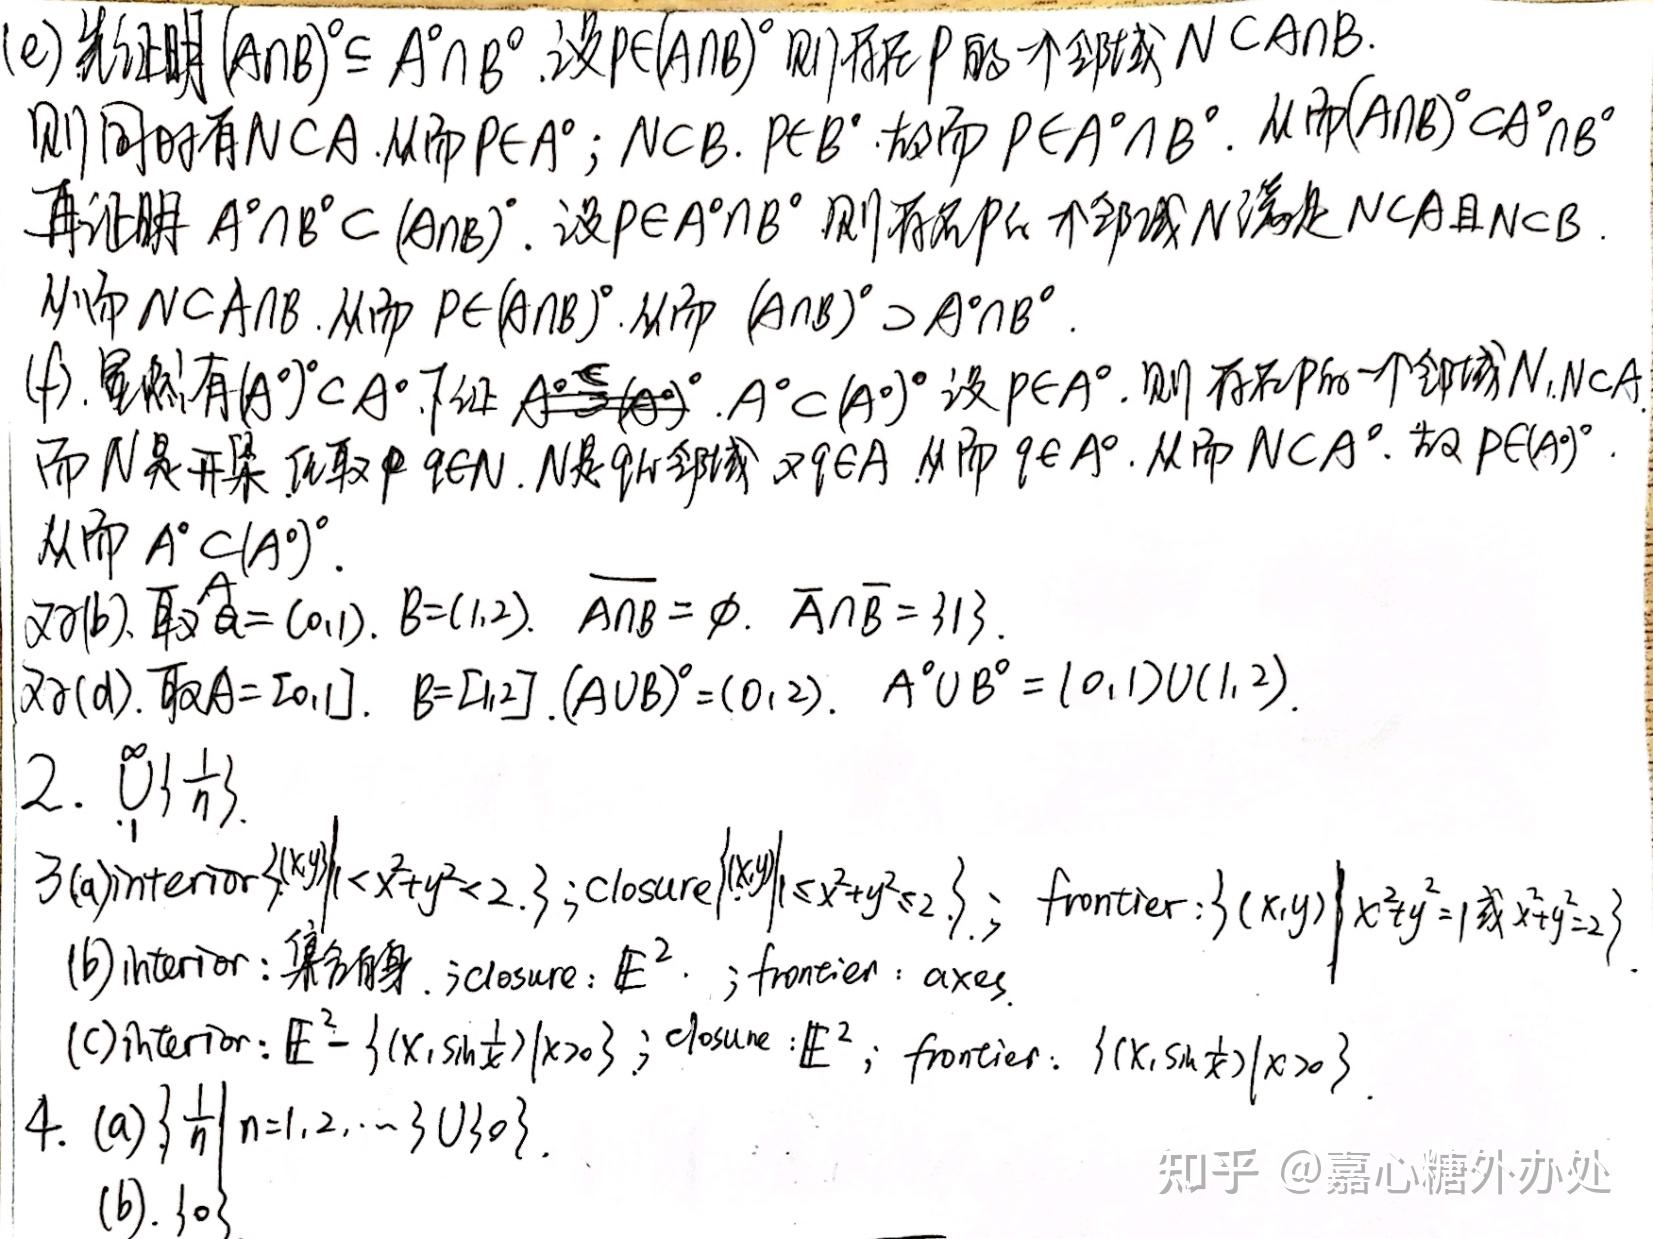 (e) 先证明 (A∩B)° ⊆ A°∩B°. 设P∈(A∩B)° 则存在P的一个邻域 N⊂A∩B.
则同时有N⊂A.从而P∈A°; N⊂B. P∈B°.故而 P∈A°∩B°. 从而(A∩B)°⊂A°∩B°
再证明 A°∩B°⊂(A∩B)°. 设P∈A°∩B° 则存在P的一个邻域N满足N⊂A且N⊂B.
从而N⊂A∩B.从而 P∈(A∩B)°.从而 (A∩B)°⊃A°∩B°.
(f). 显然有(A°)°⊂A°.下证 A°⊂(A°)° 设P∈A°.则存在P的一个邻域N,N⊂A.
而N是开集.任取 q∈N.N是q的邻域 又q∈A.从而q∈A°.从而N⊂A°.故P∈(A°)°.
从而 A°⊂(A°)°.
对(b).取A=(0,1). B=(1,2). \overline{A∩B}=∅. \overline{A}∩\overline{B}={1}.
对(d).取A=[0,1]. B=[1,2].(A∪B)°=(0,2). A°∪B°=(0,1)∪(1,2).
2. ∞∪1{1/n}.
3(a)interior{(x,y)|1<x²+y²<2.};closure{(x,y)|1≤x²+y²≤2.}; frontier:{(x,y)|x²+y²=1或x²+y²=2}.
(b)interior:集合自身.;closure:𝔼².;frontier:axes.
(c)interior:𝔼²-{(x,sin1/x)|x>0};closure:𝔼²; frontier:{(x,sin1/x)|x>0}.
4. (a){1/n|n=1,2,…}∪{0}.
(b).{0}
知乎 @嘉心糖外办处